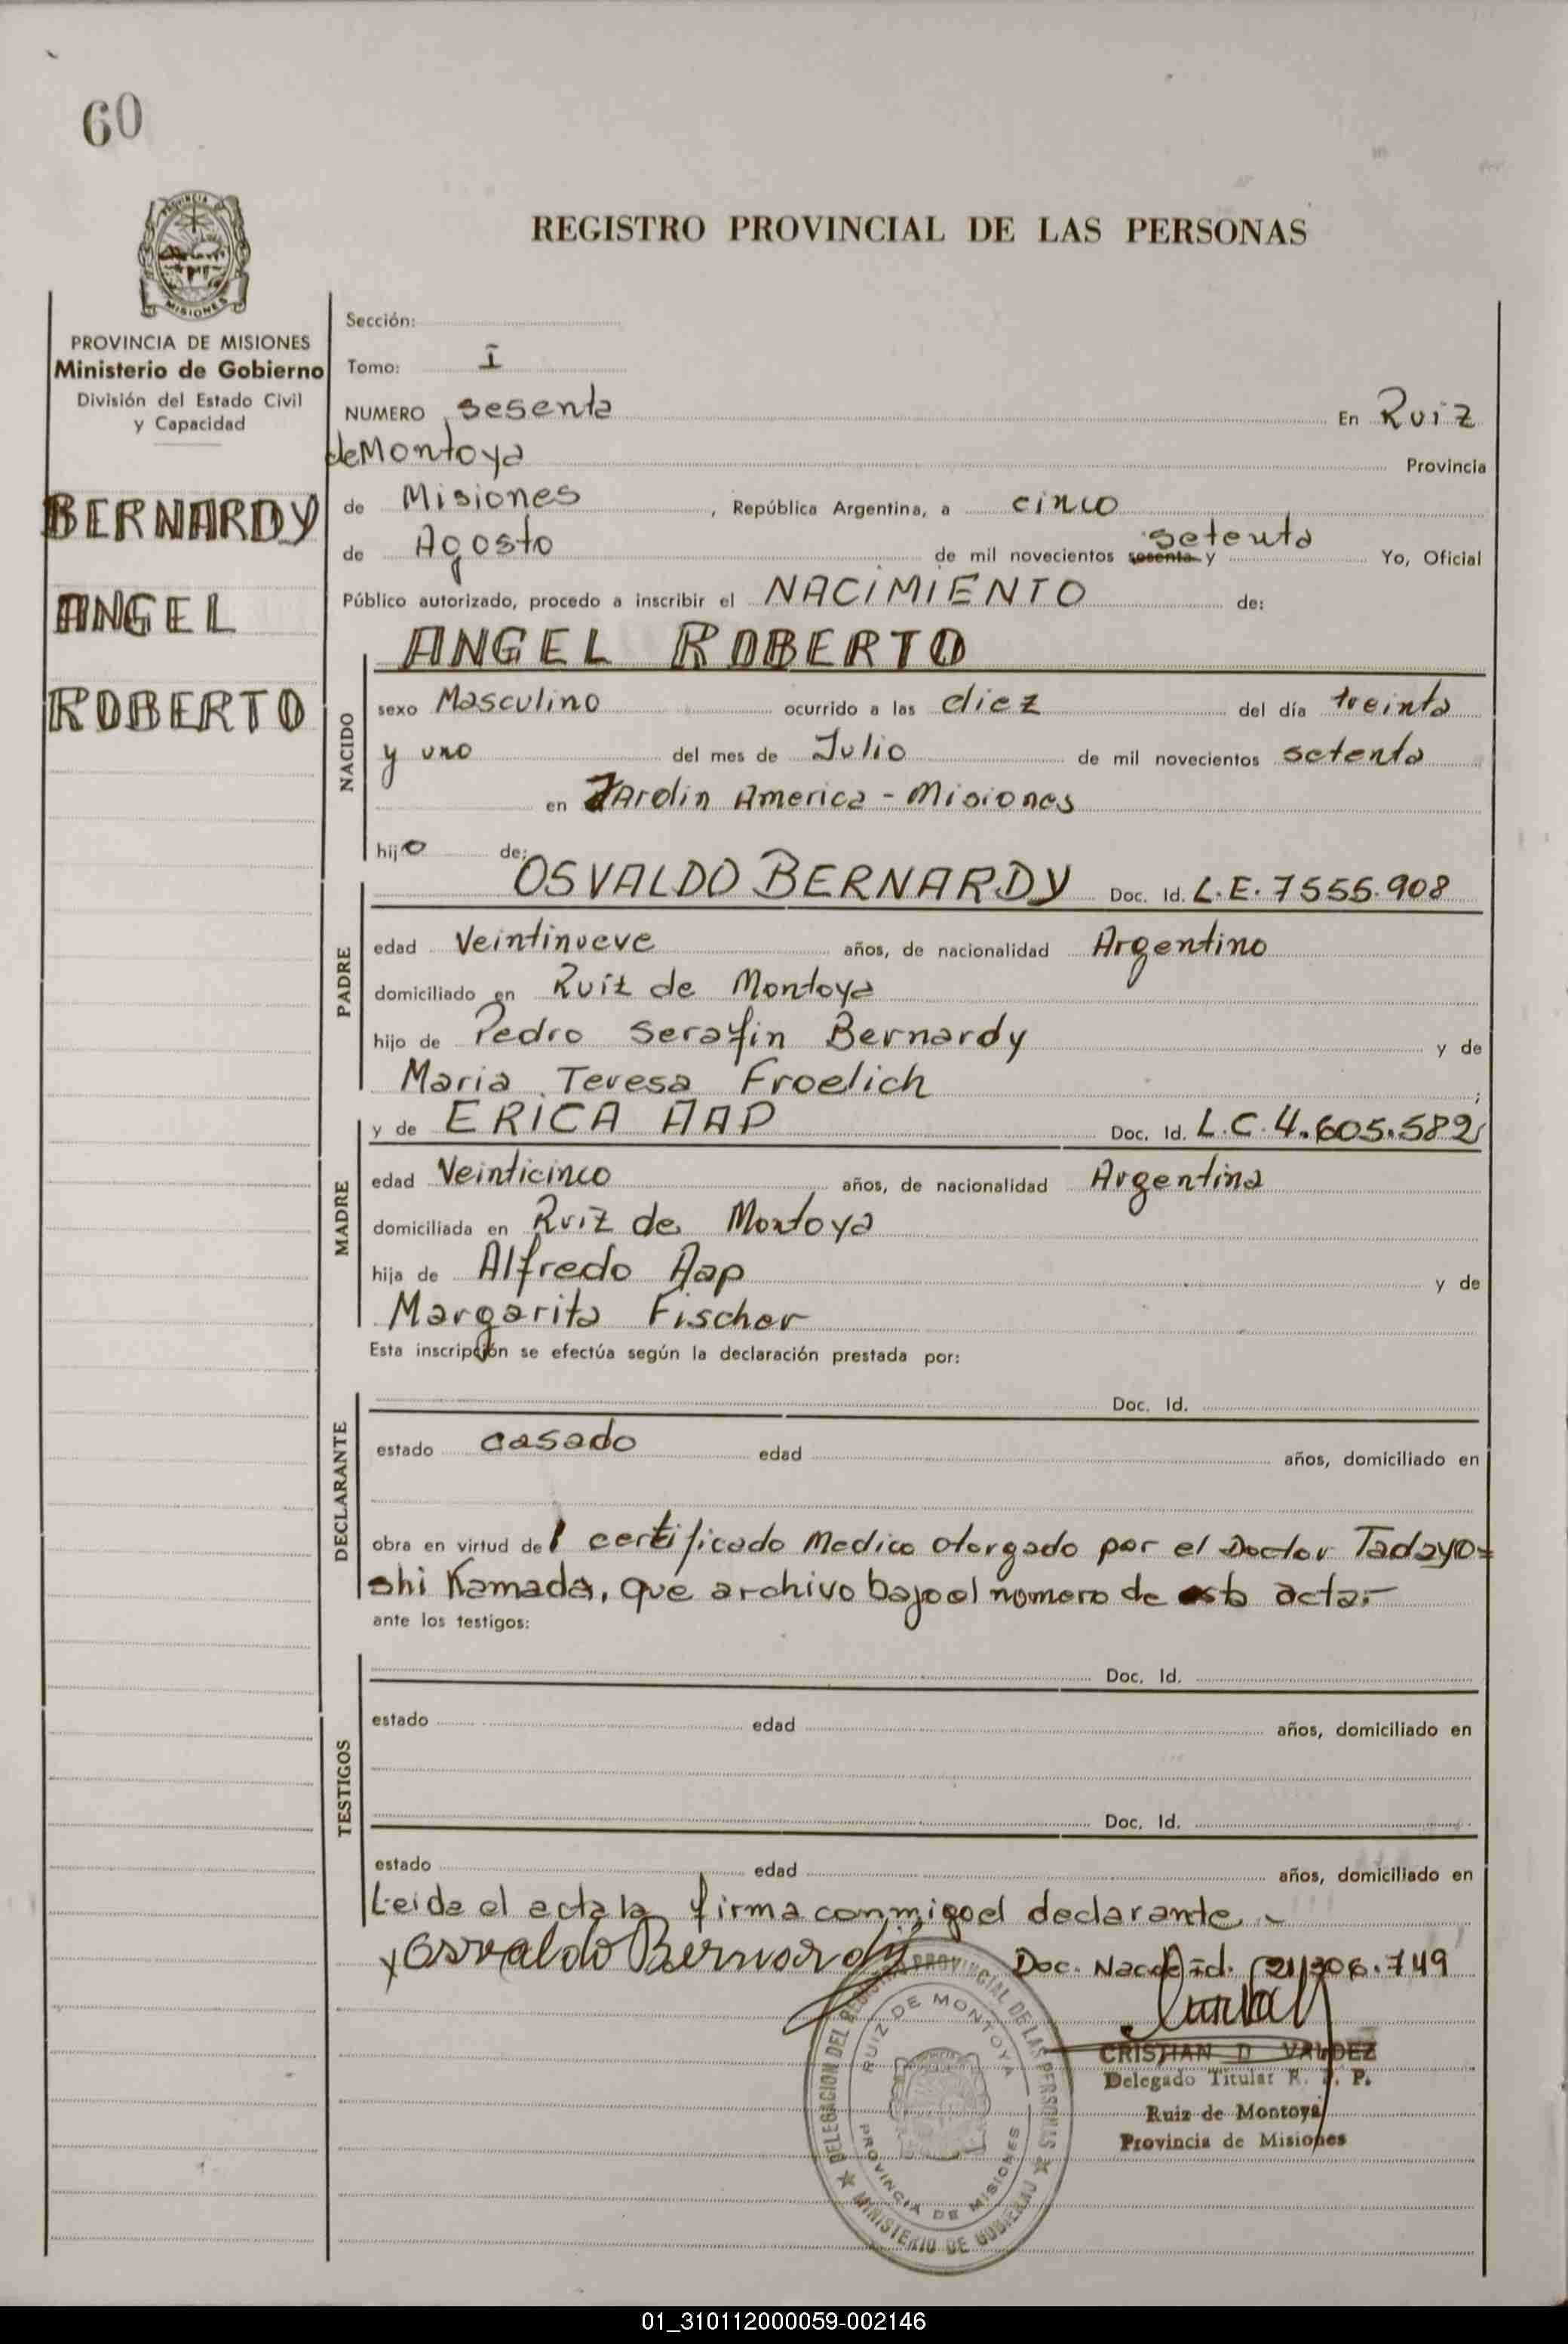 60
PROVINCIA
MISIONES
REGISTRO PROVINCIAL DE LAS PERSONAS
PROVINCIA DE MISIONES
Ministerio de Gobierno
División del Estado Civil
y Capacidad
BERNARDY
ANGEL
ROBERTO
Sección:
Tomo: I
NUMERO sesenta En Ruiz
de Montoya Provincia
de Misiones, República Argentina, a cinco
de Agosto de mil novecientos sesenta y setenta Yo, Oficial
Público autorizado, procedo a inscribir el NACIMIENTO de:
NACIDO
ANGEL ROBERTO
sexo Masculino ocurrido a las diez del día treinta
y uno del mes de Julio de mil novecientos setenta
en Jardin America - Misiones
hijo de:
PADRE
OSVALDO BERNARDY Doc. Id. L.E. 7555.908
edad Veintinueve años, de nacionalidad Argentino
domiciliado en Ruiz de Montoya
hijo de Pedro Serafin Bernardy y de
Maria Teresa Froelich ;
MADRE
y de ERICA AAP Doc. Id. L.C. 4.605.582
edad Veinticinco años, de nacionalidad Argentina
domiciliada en Ruiz de Montoya
hija de Alfredo Aap y de
Margarita Fischer
Esta inscripción se efectúa según la declaración prestada por:
DECLARANTE
Doc. Id.
estado casado edad años, domiciliado en
obra en virtud del certificado Medico otorgado por el Doctor Tadayo=
shi Kamada, que archivo bajo el numero de esta acta.-
ante los testigos:
TESTIGOS
Doc. Id.
estado edad años, domiciliado en
Doc. Id.
estado edad años, domiciliado en
Leida el acta la firma conmigo el declarante.-
x Osvaldo Bernardy Doc. Nac. Id.
CRISTIAN D VALDEZ
Delegado Titular R. P. P.
Ruiz de Montoya
Provincia de Misiones
DELEGACION DEL REGISTRO PROVINCIAL DE LAS PERSONAS
RUIZ DE MONTOYA
PROVINCIA DE MISIONES
MINISTERIO DE GOBIERNO
01_310112000059-002146